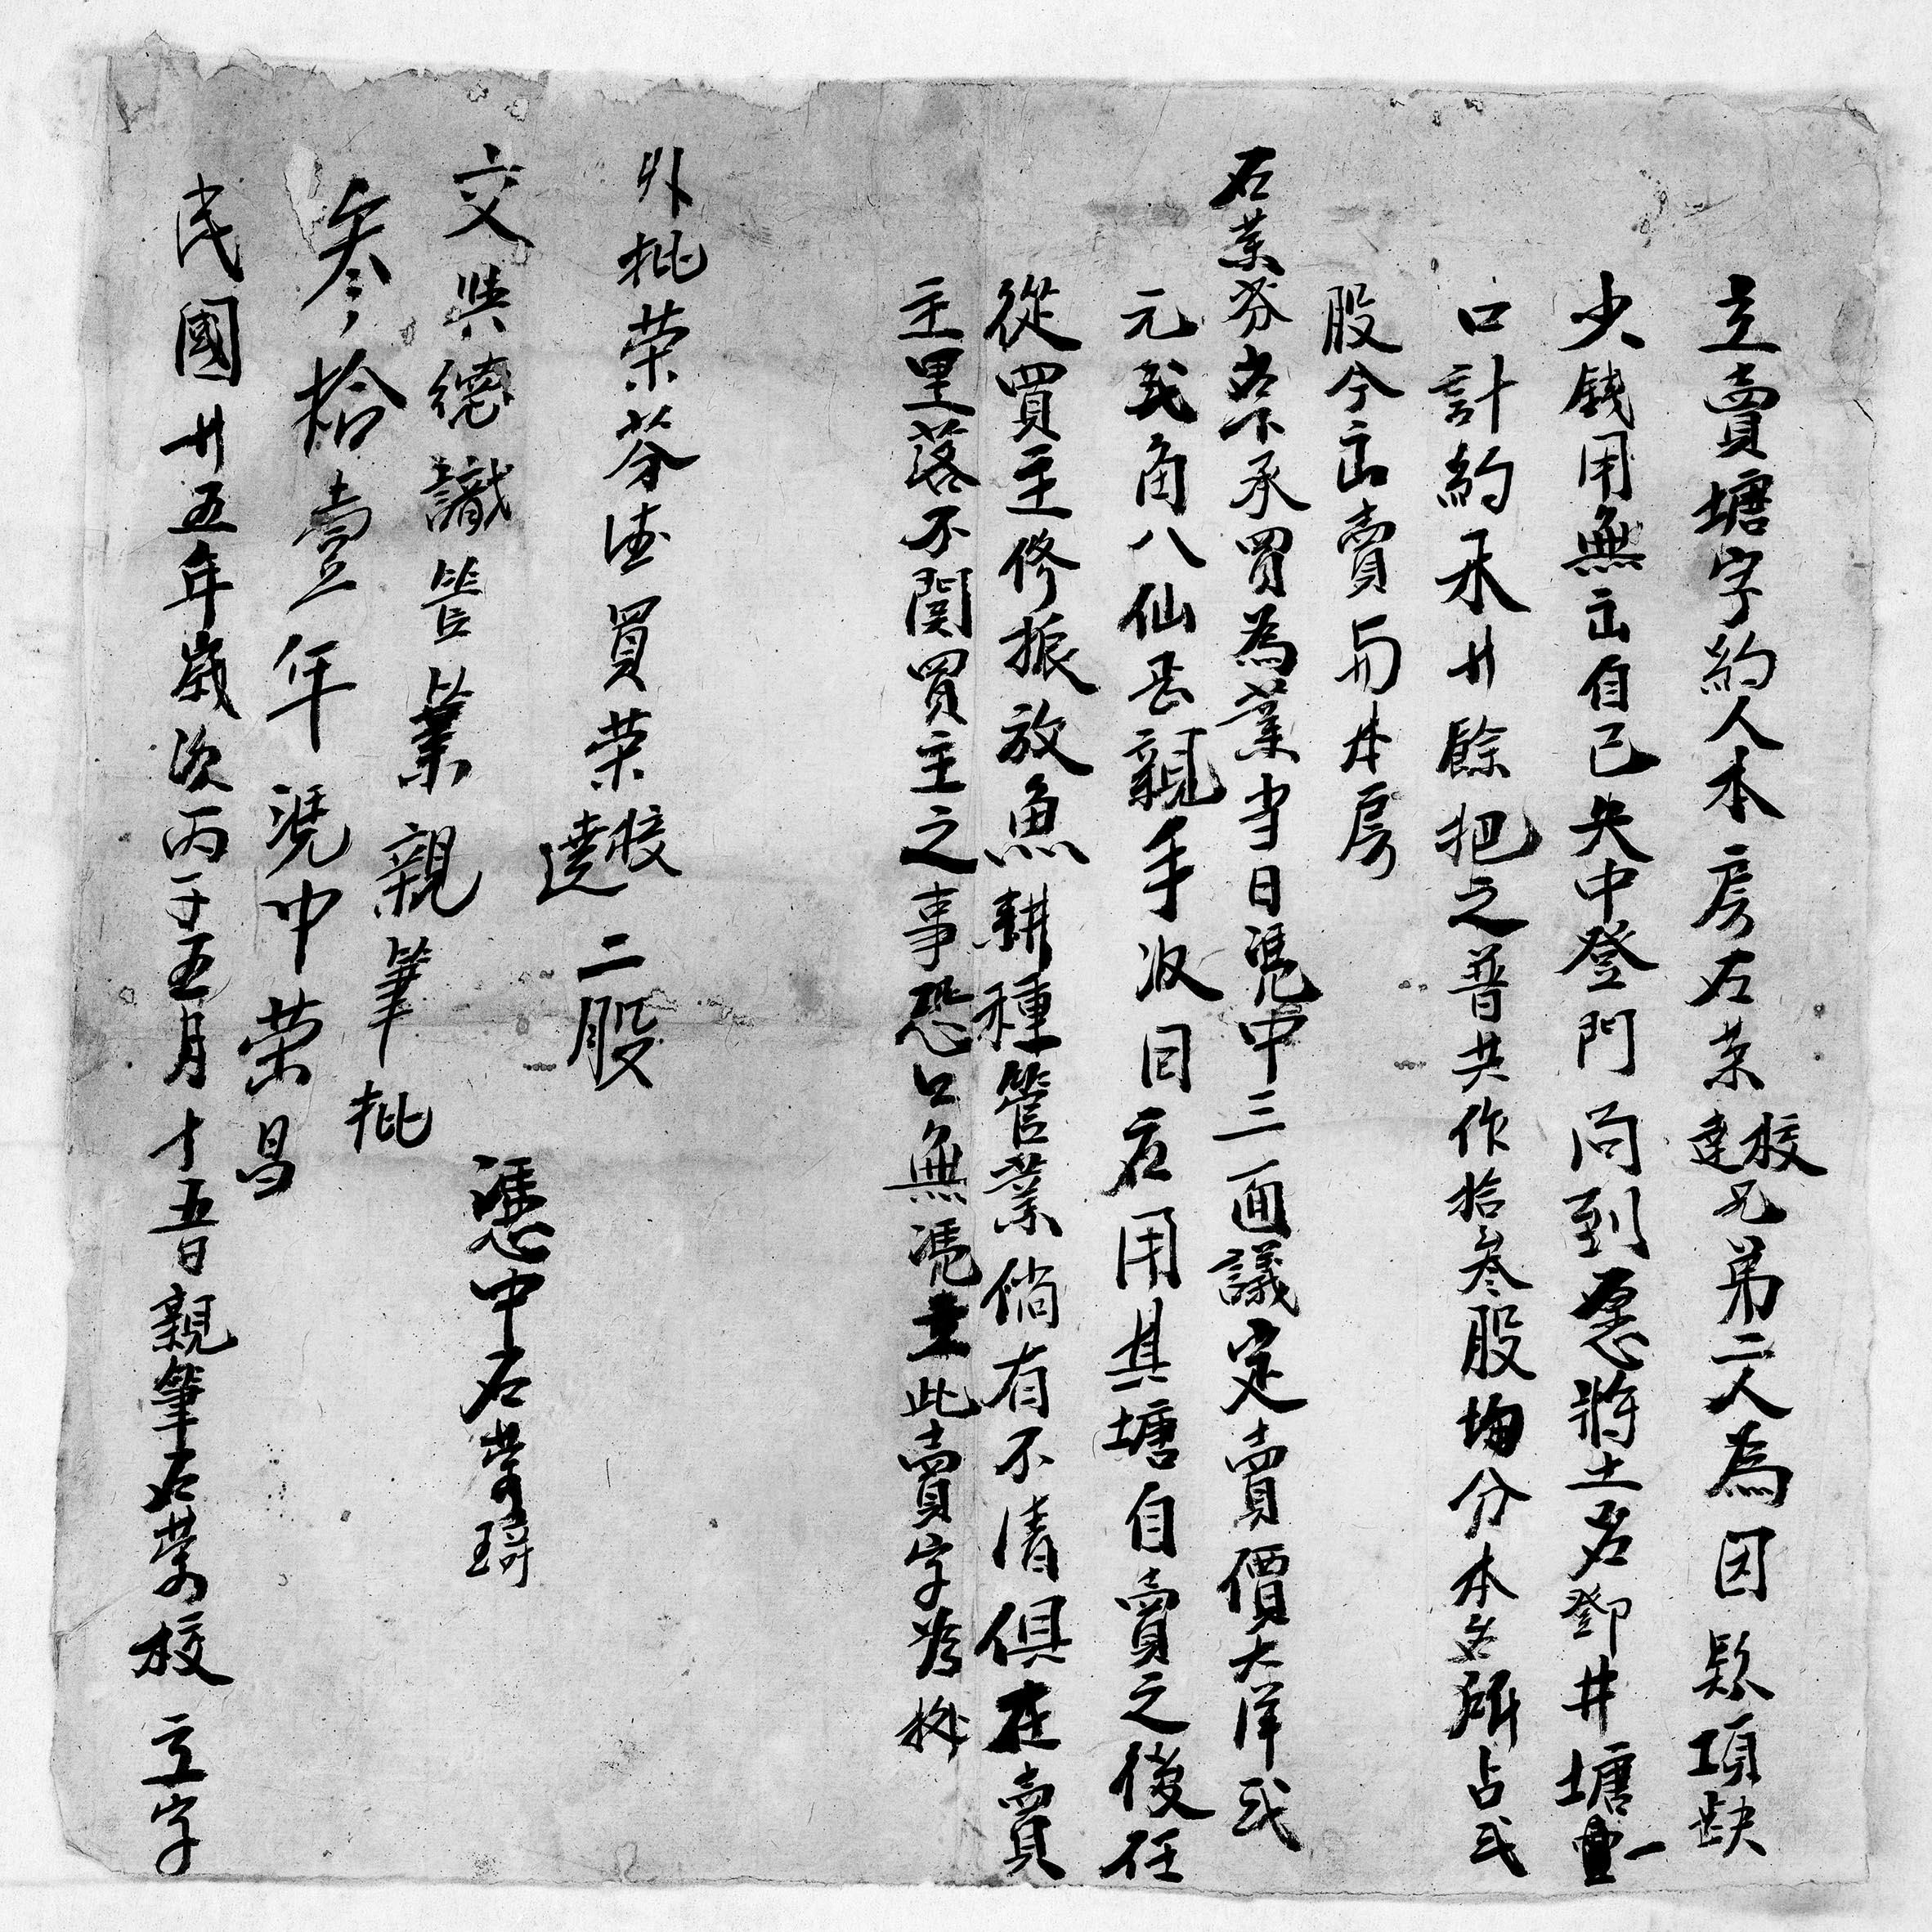 立賣塘字約人本房石荣校達兄弟二人為因賬項缺
少錢用無出自己央中登門問到愿將土名鄧井塘一
口計約禾廿餘把之普共作拾叁股均分本名所占弍
股今出賣与本房
石業芬荣承買為業当日凴中三面議定賣價大洋弍
元弍角八仙正親手收回应用其塘自賣之後任
從買主修振放魚耕種管業倘有不清俱在賣
主里落不関買主之事恐口無凴立此賣字為㨿
外批荣芬徳買荣校達二股
交與德識管業親筆批
叁拾壹年凴中荣昌
憑中石荣琦
民國廿五年歲次丙子五月十五日親筆石荣校立字